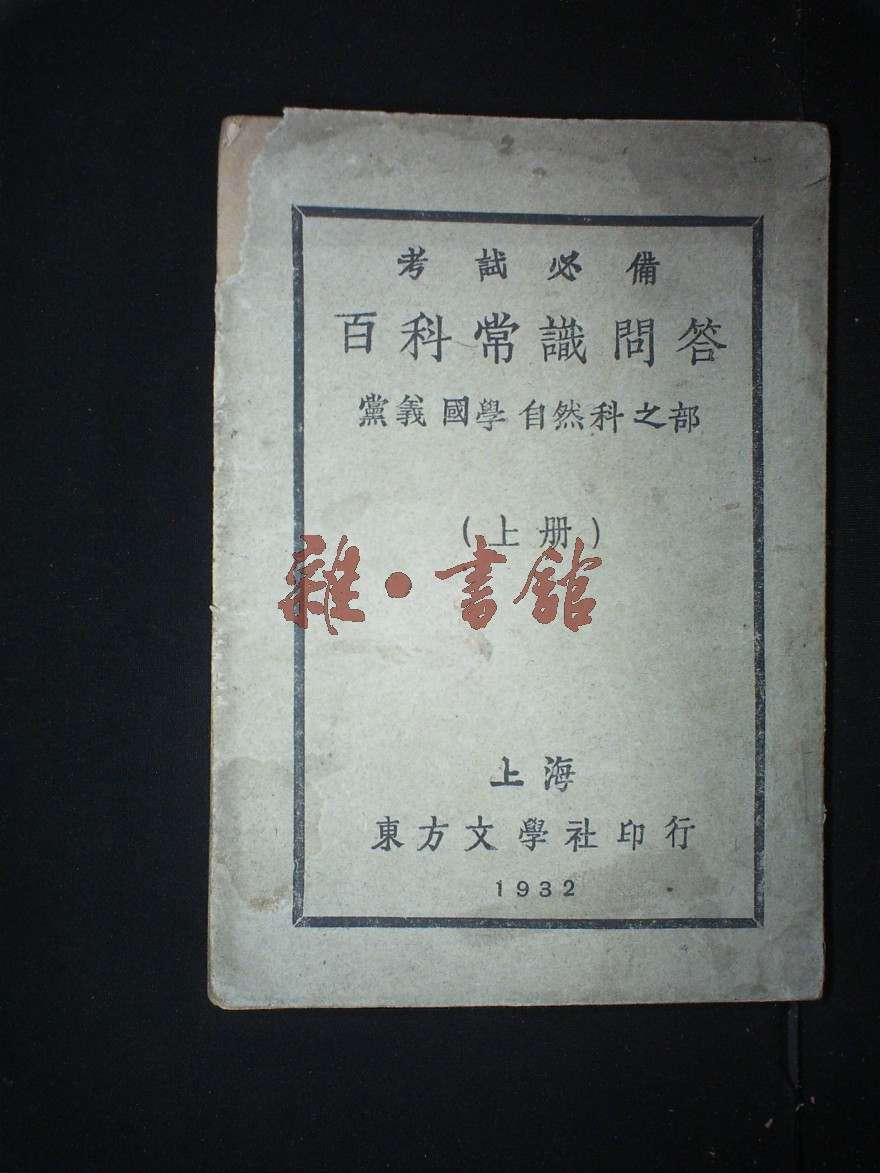 考試必備
百科常識問答
黨義 國學 自然科之部
(上册)
雜·書館
上海
東方文學社印行
1932